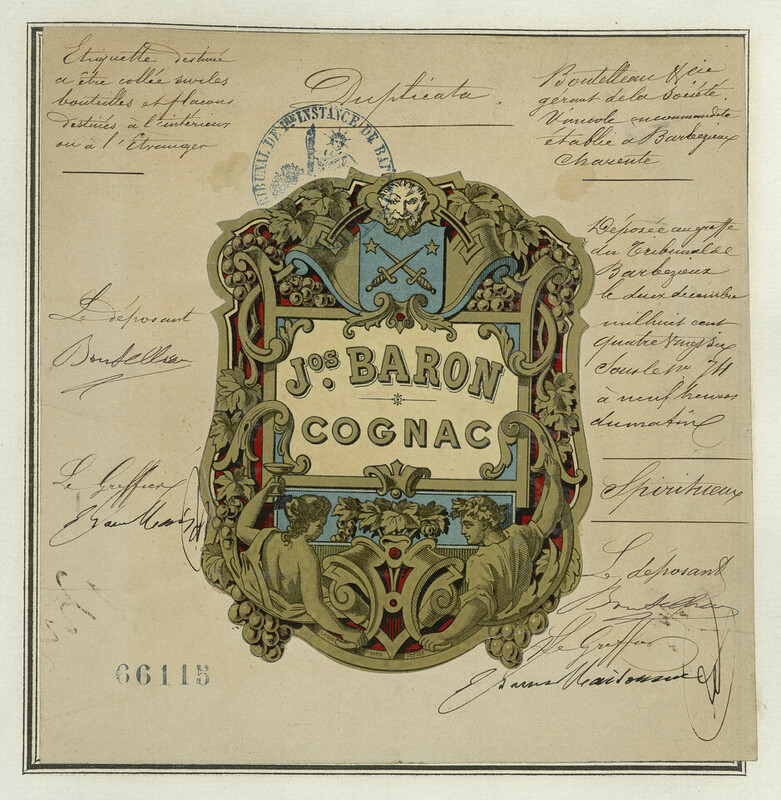 Etiquette destinée
a être collée sur les
bouteilles et flacons
destinés à l'intérieur
ou à l'Etranger
Duplicata.
Boutelleau & cie
gerant de la Société
Vinicole en commandite
établie à Barbezieux
Charente
TRIBUNAL DE 1ERE INSTANCE DE BAR
Déposée au greffe
du Tribunal de
Barbezieux
le deux décembre
mil huit cent
quatre Vingt
Sous le no 74
à neuf heures
du matin
Spiritueux
Le déposant
Boutelleau
Le Greffier
Jos. BARON
COGNAC
Le déposant
Boutelleau
Le Greffier
66115